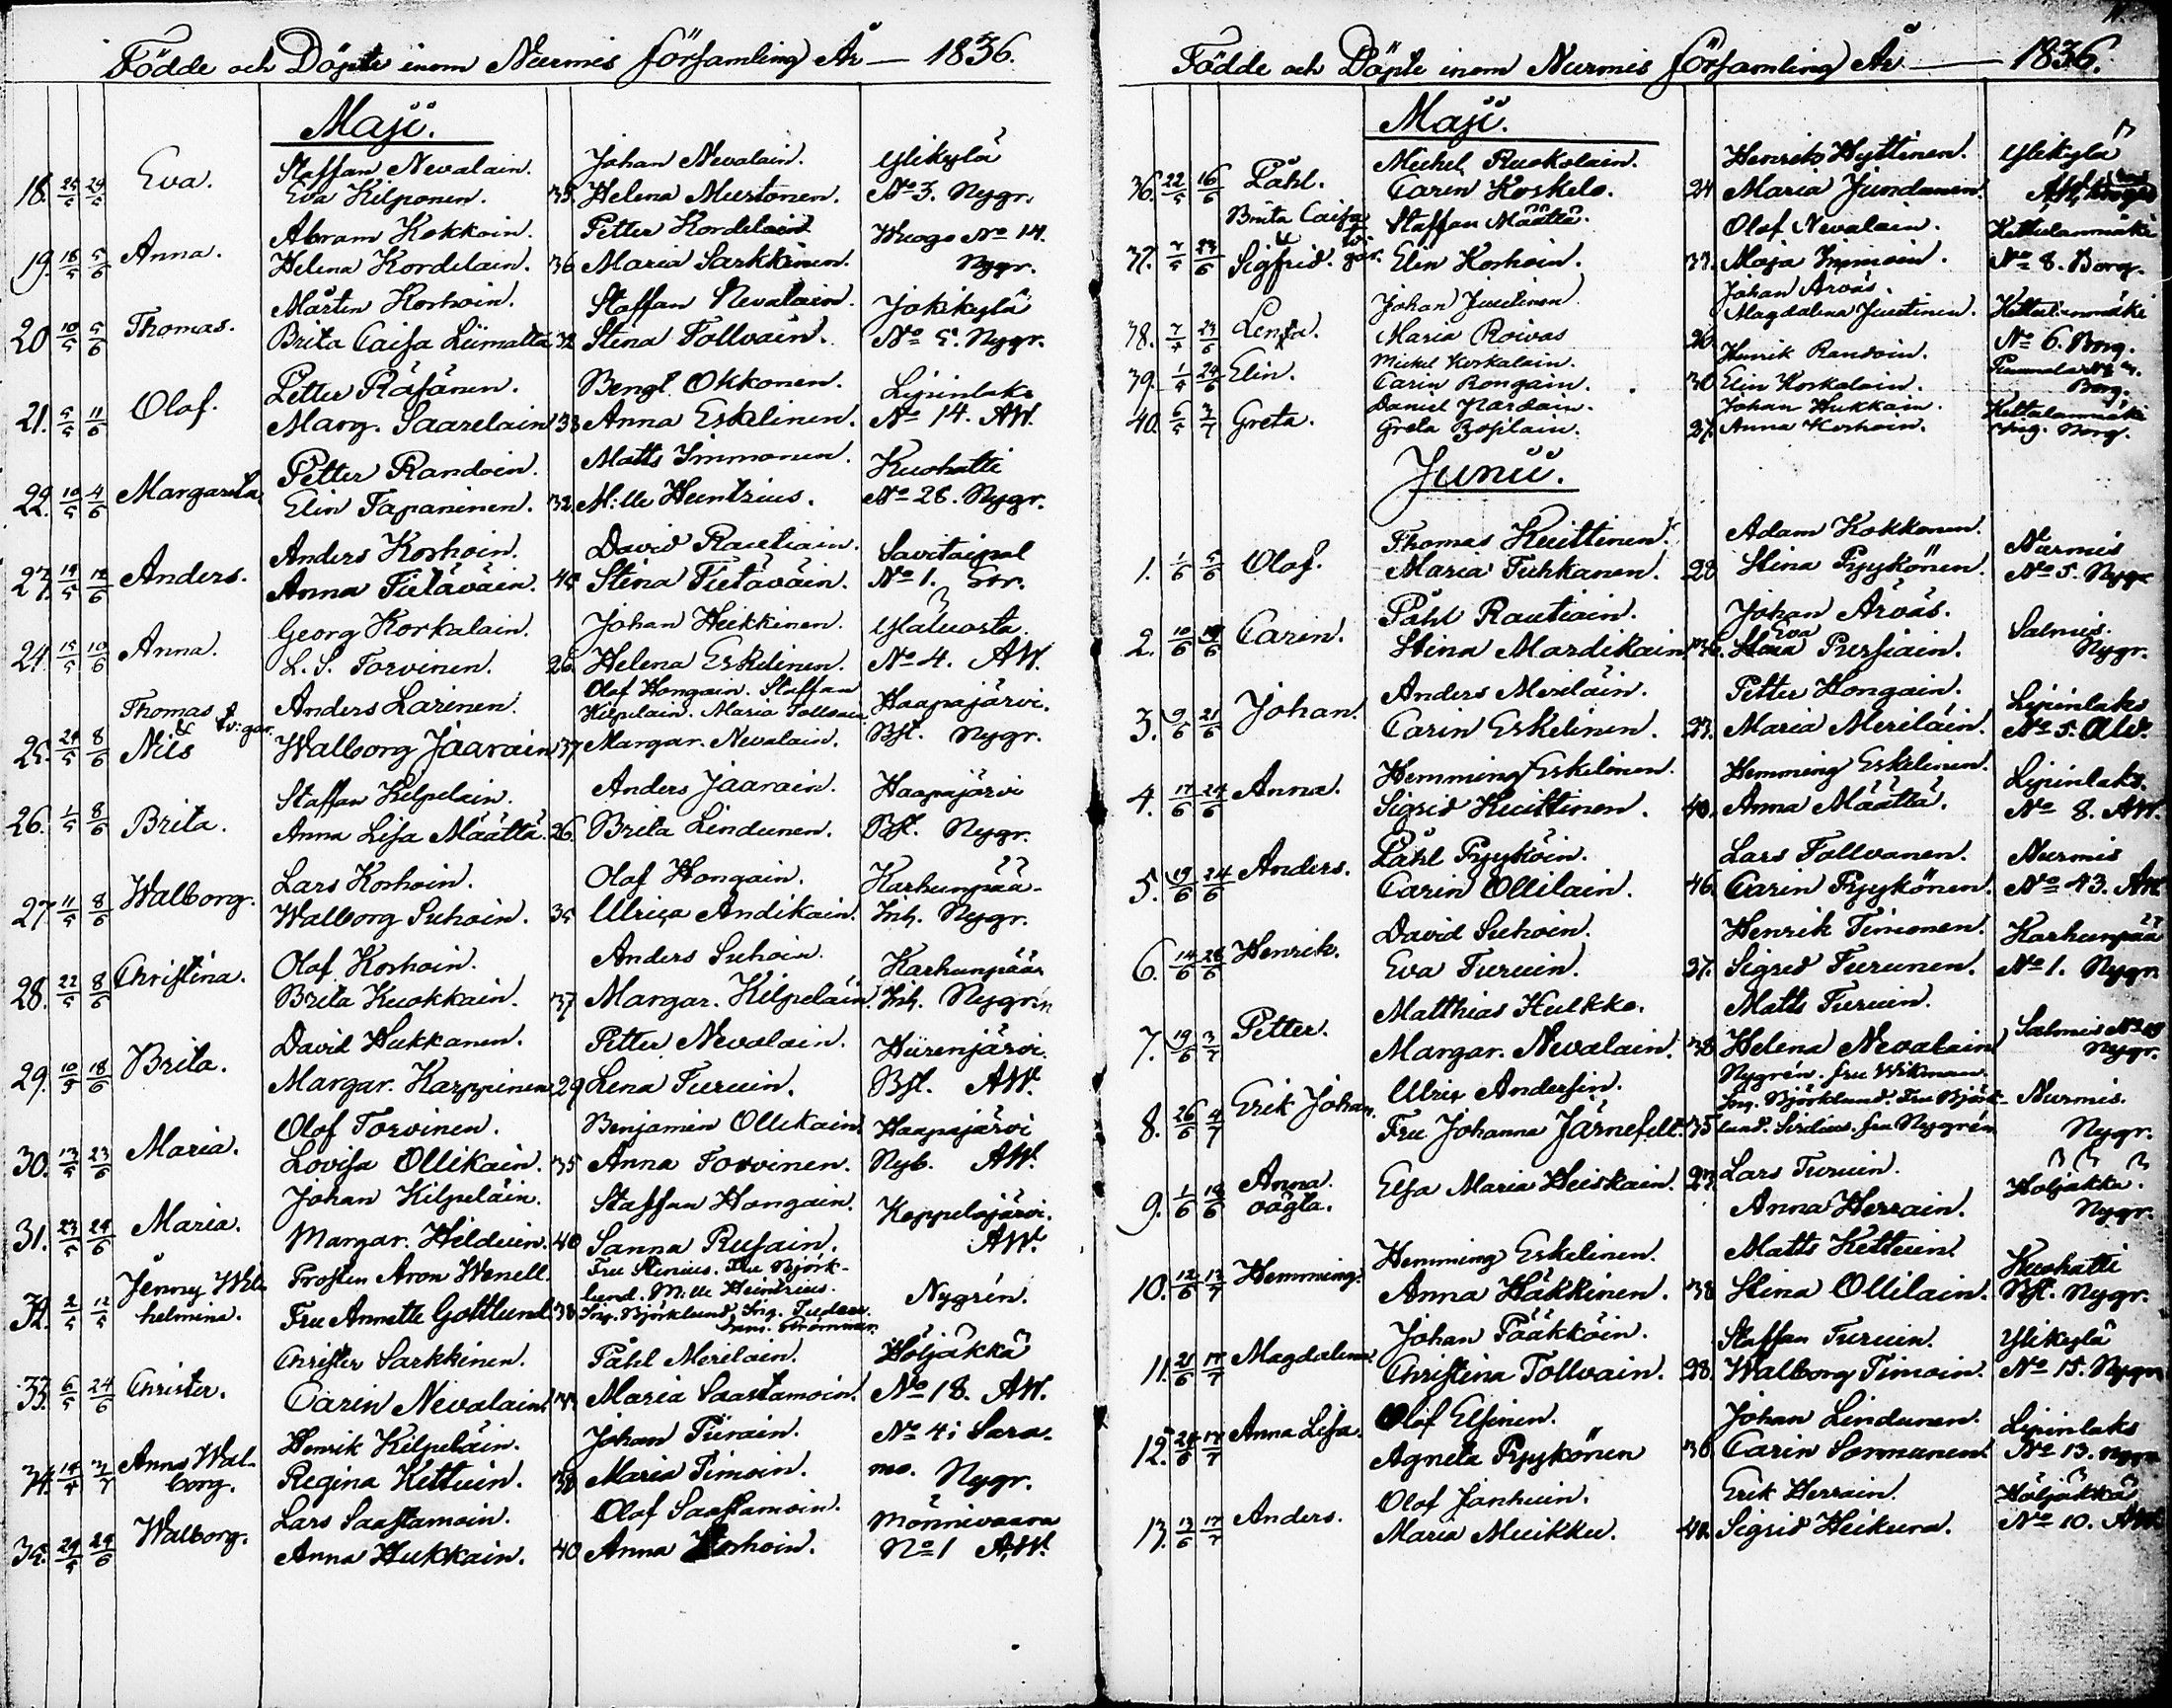 Födde och Döpte inom Nurmis församling År — 1836.
Maji.
Staffan Nevalain. Johan Nevalain. Ylikylä
18. 25/5 29/5 Eva. Eva Kilponen. 35. Helena Mustonen. No 3. Nygr.
Abram Kokkoin. Petter Kordelain No 14.
19. 18/5 5/6 Anna. Helena Kordelain. 36 Maria Sarkkinen. Nygr.
Mårten Korhoin. Staffan Nevalain. Jokikylä
20 10/5 5/6 Thomas. Brita Caisa Liimatta 32 Stina Tollvain. No 5. Nygr.
Petter Räsänen. Bengt Okkonen. Lipinlaks
21. 5/5 11/6 Olof. Marg. Saarelain 33 Anna Eskelinen. No 14. AW.
Petter Randoin. Matts Immonen. Kuohatti
22. 10/5 4/6 Margareta Elin Tapaninen. 32. M:lle Heintrius. No 26. Nygr.
Anders Korhoin. David Rautiain. Savitaipal
23. 19/5 12/6 Anders. Anna Tietäväin. 45 Stina Tietäväin. No 1.
Georg Korkalain. Johan Heikkinen.
24. 15/5 10/6 Anna. L. S. Torvinen. 26. Helena Eskelinen. No 4. AW.
Olof Hongain. Staffan
Thomas & tv:gar. Anders Larinen. Kilpelain. Maria Tollvain Haapajärvi.
25. 24/5 8/6 Nils Walborg Jaarain 37 Margar. Nevalain. Bst. Nygr.
Staffan Kilpelain. Anders Jaarain. Haapajärvi
26. 1/5 8/6 Brita. Anna Lisa Määttä. 26. Brita Lindunen. Bst. Nygr.
Lars Korhoin. Olof Hongain. Karhunpää
27. 11/5 8/6 Walborg. Walborg Suhoin. 35 Ulrica Andikain. Inh. Nygr.
Olof Korhoin. Anders Suhoin. Karhunpää
28. 22/5 8/6 Christina. Brita Kuokkain. 37 Margar. Kilpeläin. Inh. Nygrén
David Hukkanen. Petter Nevalain. Hiirenjärvi.
29. 10/5 18/6 Brita. Margar. Karppinen 29 Lena Turuin. Bst. AW.
Olof Torvinen. Benjamin Ollikain. Haapajärvi
30. 13/5 23/6 Maria. Lovisa Ollikain. 35 Anna Torvinen. Nyb. AW.
Johan Kilpeläin. Staffan Hongain. Keppelojärvi.
31. 23/5 24/6 Maria. Margar. Hilduin. 40 Sanna Rusain. AW.
Jenny Wil- Prosten Aron Wenell. Fru Stenius. Fru Björk-
lund. M:lle Heintrius. Nygrén.
32. 2/5 12/5 helmina. Fru Annette Gottlund 38 Ing. Björklund. Ing.
Christer Sarkkinen. Påhl Merilain. Höljäkkä
33. 6/5 24/6 Christer. Carin Nevalain. 33 Maria Saastamoin. No 18. AW.
Henrik Kilpeläin. Johan Piirain. No 4 i Sara-
34. 3/7 Anna Wal- borg. Regina Kettuin. 38 Maria Timoin. mo. Nygr.
Lars Saastamoin. Olof Saastamoin. Mönnivaara
35. 29/5 29/6 Walborg. Anna Hukkain. 40 Anna Korhoin. No 1 A.W.
Födde och Döpte inom Nurmis församling År — 1836.
Maji.
Michel Ruokolain. Henrik Hyttinen. Ylikylä
36. 22/5 16/6 Påhl. Carin Koskelo. 24 Maria Jundunen.
Brita Caisa & Staffan Määttä. Olof Nevalain. Kettulanmäki
37. 7/5 23/6 Sigfrid. tv:gar. Elin Korhoin. 33. Maja Immoin. No 8. Borg.
Johan Arväs.
Johan Juutinen. Magdalena Juutinen. Kettulanmäki
38. 7/5 23/6 Lena. Maria Roivas 26. No 6. Borg.
Michel Korkalain. Henrik Randoin.
39. 1/5 24/6 Elin. Carin Rongain. 30 Elin Korkalain. Borg.
Daniel Nardain. Johan Hukkain. Kettulanmäki
40. 6/5 3/7 Greta. Greta 27. Anna Korhoin. Borg.
Junii.
Thomas Kuittinen. Adam Kokkonen. Nurmis
1. 1/6 5/6 Olof. Maria Tuhkanen. 28 Stina Pyykönen. No 5. Nygr.
Påhl Rautiain. Johan Arväs. Salmis.
2. 10/6 19/6 Carin. Stina Mardikain 36. Eva Pursiain. Nygr.
Anders Meriläin. Petter Hongain. Lipinlaks
3. 9/6 21/6 Johan. Carin Eskelinen. 23. Maria Meriläin. No 5.
Hemming Eskelinen. Hemming Eskelinen. Lipinlaks.
4. 17/6 24/6 Anna. Sigrid Kuittinen. 40. Anna Määttä. No 8. AW.
Påhl Pyyköin. Lars Tollvanen. Nurmis
5. 19/6 24/6 Anders. Carin Ollilain. 46. Carin Pyykönen. No 43. AW
David Suhoin. Henrik Timonen. Karhunpää
6. 14/6 26/6 Henrik. Eva Turuin. 37. Sigrid Turunen. No 1. Nygr.
Matthias Hulkko. Matts Turuin.
7. 19/6 3/7 Petter. Margar. Nevalain. 38 Helena Nevalain Salmis No Nygr.
Nygrén. fru Wikman.
Ulric Andersin. Ing. Björklund. Fru Björk- Nurmis.
8. 26/6 4/7 Erik Johan. Fru Johanna Järnefelt. 35 lund. Sirelius. fru Nygrén Nygr.
Anna. Lars Turuin. Höljäkkä.
9. 1/6 18/6 oägta. Elsa Maria Heiskain. 23. Anna Herrain. Nygr.
Hemming Eskelinen. Matts Kettuin. Kuohatti
10. 12/6 13/7 Hemming. Anna Häkkinen. 38 Stina Ollilain. Bst. Nygr.
Johan Pääkköin. Staffan Turuin. Ylikylä
11. 21/6 17/7 Magdalena. Christina Tollvain. 28. Walborg Timoin. No 15. Nygr.
Olof Elsinen. Johan Lindunen. Lipinlaks
12. 17/7 Anna Lisa. Agneta Pyykönen 36. Carin Sormunen. No 13. Nygr.
Olof Janhuin. Erik Herrain. Höljäkkä
13. 13/6 17/7 Anders. Maria Muikku. 42. Sigrid Heikura. No 10. AW